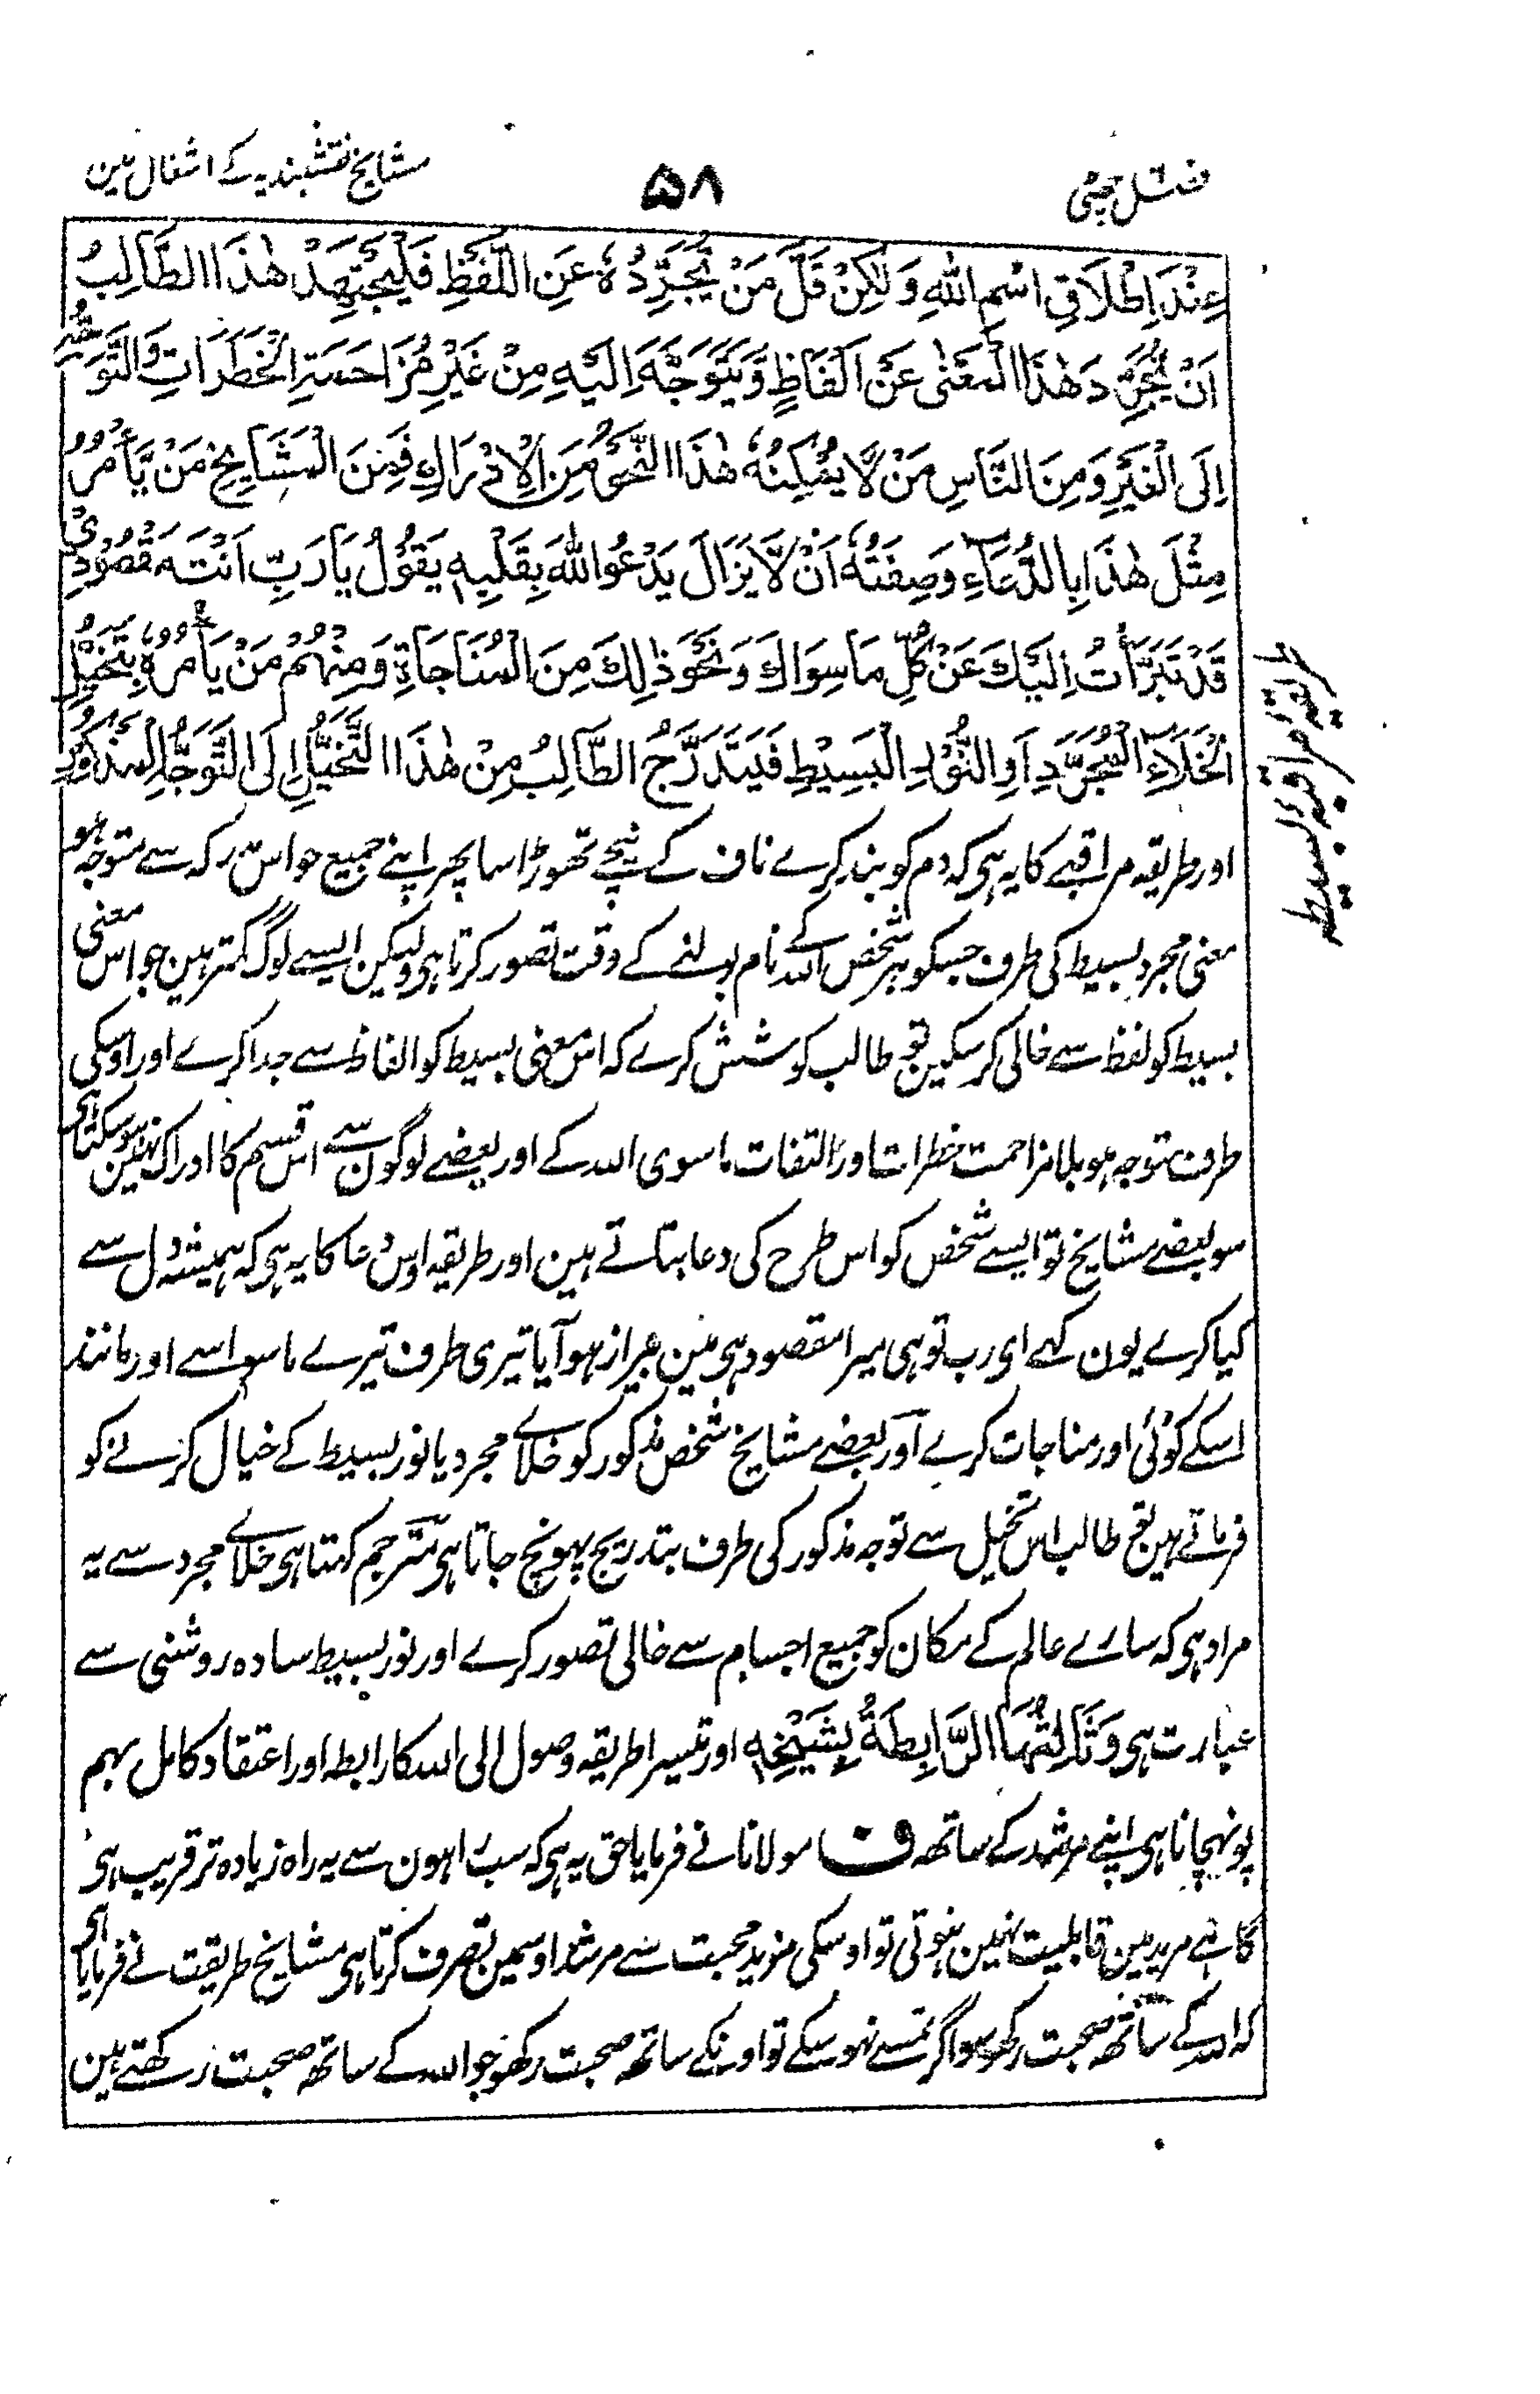 فصل چھٹی
۵۸
مشایخ نقشبندیہ کے اشغال مین
عِنْدَ اِطْلَاقِ اسْمِ اللّٰهِ وَلٰكِنْ قَلَّ مَنْ يُّجَرِّدُهٗ عَنِ اللَّفْظِ فَلْيَجْتَهِدْ هٰذَا الطَّالِبُ
اَنْ يُّجَرِّدَ هٰذَا الْمَعْنٰى عَنْ اَلْفَاظٍ وَّيَتَوَجَّهَ اِلَيْهِ مِنْ غَيْرِ مُزَاحَمَةِ الْخَطَرَاتِ وَالتَّوَجُّهِ
اِلَى الْغَيْرِ وَمِنَ النَّاسِ مَنْ لَّا يُمْكِنُهٗ هٰذَا النَّحْوُ مِنَ الْاِدْرَاكِ فَمِنَ الْمَشَايِخِ مَنْ يَّأْمُرُ
مِثْلَ هٰذَا بِالدُّعَآءِ وَصِفَتُهٗ اَنْ لَّا يَزَالَ يَدْعُوا اللّٰهَ بِقَلْبِهٖ يَقُوْلُ يَا رَبِّ اَنْتَ مَقْصُوْدِيْ
قَدْ تَبَرَّأْتُ اِلَيْكَ عَنْ كُلِّ مَا سِوَاكَ وَنَحْوَ ذٰلِكَ مِنَ الْمُنَاجَاةِ وَمِنْهُمْ مَنْ يَأْمُرُهٗ بِتَخَيُّلِ
الْخَلَاۤءِ الْمُجَرَّدِ اَوِ النُّوْرِ الْبَسِيْطِ فَيَتَدَرَّجُ الطَّالِبُ مِنْ هٰذَا التَّخَيُّلِ اِلَى التَّوَجُّهِ الْمَذْكُوْرِ
طریقہ مراقبہ بسیط
اور طریقہ مراقبے کا یہ ہی کہ دم کو بند کرے ناف کے نیچے تھوڑا سا پھر اپنے جمیع حواس مدرکہ سے متوجہ ہو
معنی مجرد بسیط کی طرف جسکو ہر شخص اللہ کے نام بولنے کے وقت تصور کرتا ہی ولیکن ایسے لوگ کمتر ہین جو اس معنی
بسیط کو لفظ سے خالی کر سکین تو طالب کوشش کرے کہ اس معنی بسیط کو الفاظ سے جدا کرے اور اوسکی
طرف متوجہ ہو بلا مزاحمت خطرات اور التفات ماسوی اللہ کے اور بعضے لوگون سے اس قسم کا ادراک نہین ہو سکتا ہی
سو بعضے مشایخ تو ایسے شخص کو اس طرح کی دعا بتاتے ہین اور طریقہ اوس دعا کا یہ ہی کہ ہمیشہ دل سے
کیا کرے یون کہے ای رب تو ہی میرا مقصود ہی مین بیزار ہو آیا تیری طرف تیرے ماسوا سے اور مانند
اسکے کوئی اور مناجات کرے اور بعضے مشایخ شخص مذکور کو خلاے مجرد یا نور بسیط کے خیال کرنے کو
فرماتے ہین تو طالب اس تخیل سے توجہ مذکور کی طرف بتدریج پہونچ جاتا ہی مترجم کہتا ہی خلاے مجرد سے یہ
مراد ہی کہ سارے عالم کے مکان کو جمیع اجسام سے خالی تصور کرے اور نور بسیط سادہ روشنی سے
عبارت ہی وَثَالِثُهَا الرَّابِطَةُ بِشَيْخِهٖ اور تیسرا طریقہ وصول الی اللہ کا رابطہ اور اعتقاد کامل بہم
پونہچانا ہی اپنے مرشد کے ساتھ ف مولانا نے فرمایا حق یہ ہی کہ سب راہون سے یہ راہ زیادہ تر قریب ہی
گاہے مرید مین قابلیت نہین ہوتی تو اوسکی مزید محبت سے مرشد اوسمین تصرف کرتا ہی مشایخ طریقت نے فرمایا ہی
کہ اللہ کے ساتھ صحبت رکھو سو اگر تمسے نہو سکے تو اونکے ساتھ صحبت رکھو جو اللہ کے ساتھ صحبت رکھتے ہین